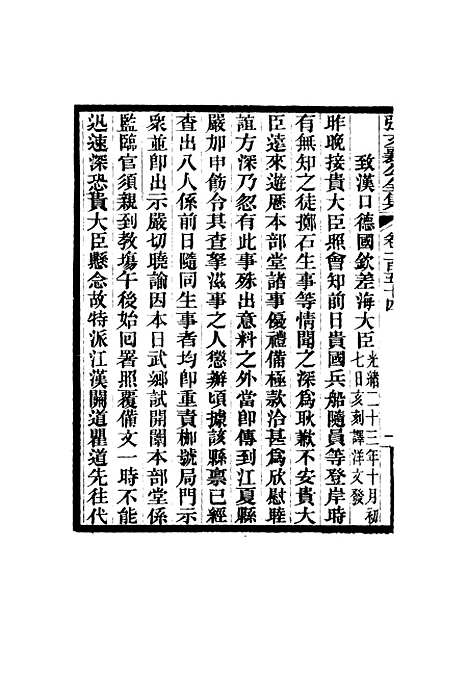 張文襄公全集 卷一百五十四
致漢口德國欽差海大臣 光緒二十三年十月初
七日亥刻譯洋文發
昨晚接貴大臣照會知前日貴國兵船隨員等登岸時
有無知之徒擲石生事等情聞之深爲耿歉不安貴大
臣遠來遊歷本部堂諸事優禮備極款洽甚爲欣慰睦
誼方深乃忽有此事殊出意料之外當即傳到江夏縣
嚴加申飭令其查拏滋事之人懲辦頃據該縣禀已經
查出八人係前日隨同生事者均即重責枷號局門示
衆並即出示嚴切曉諭因本日武鄉試開闈本部堂係
監臨官須親到教場午後始回署照覆備文一時不能
迅速深恐貴大臣懸念故特派江漢關道瞿道先往代